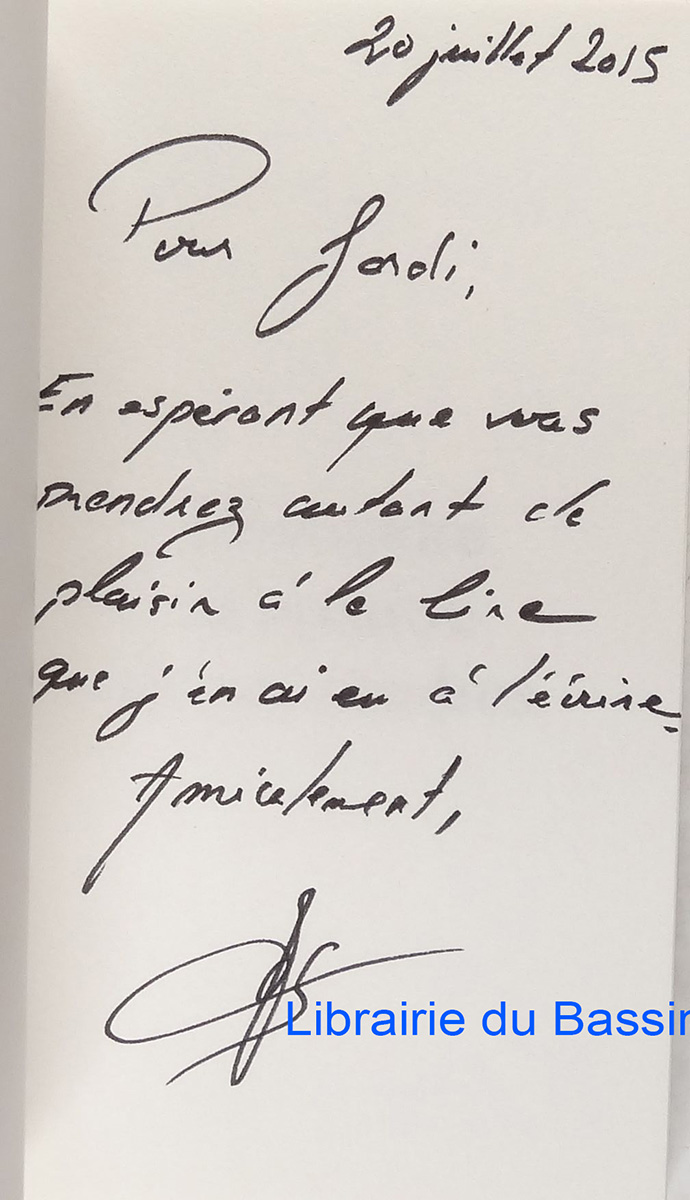 20 juillet 2015
Pour Jordi,
En espérant que vous
prendrez autant de
plaisir à le lire
que j'en ai eu à l'écrire.
Amicalement,
Librairie du Bassin